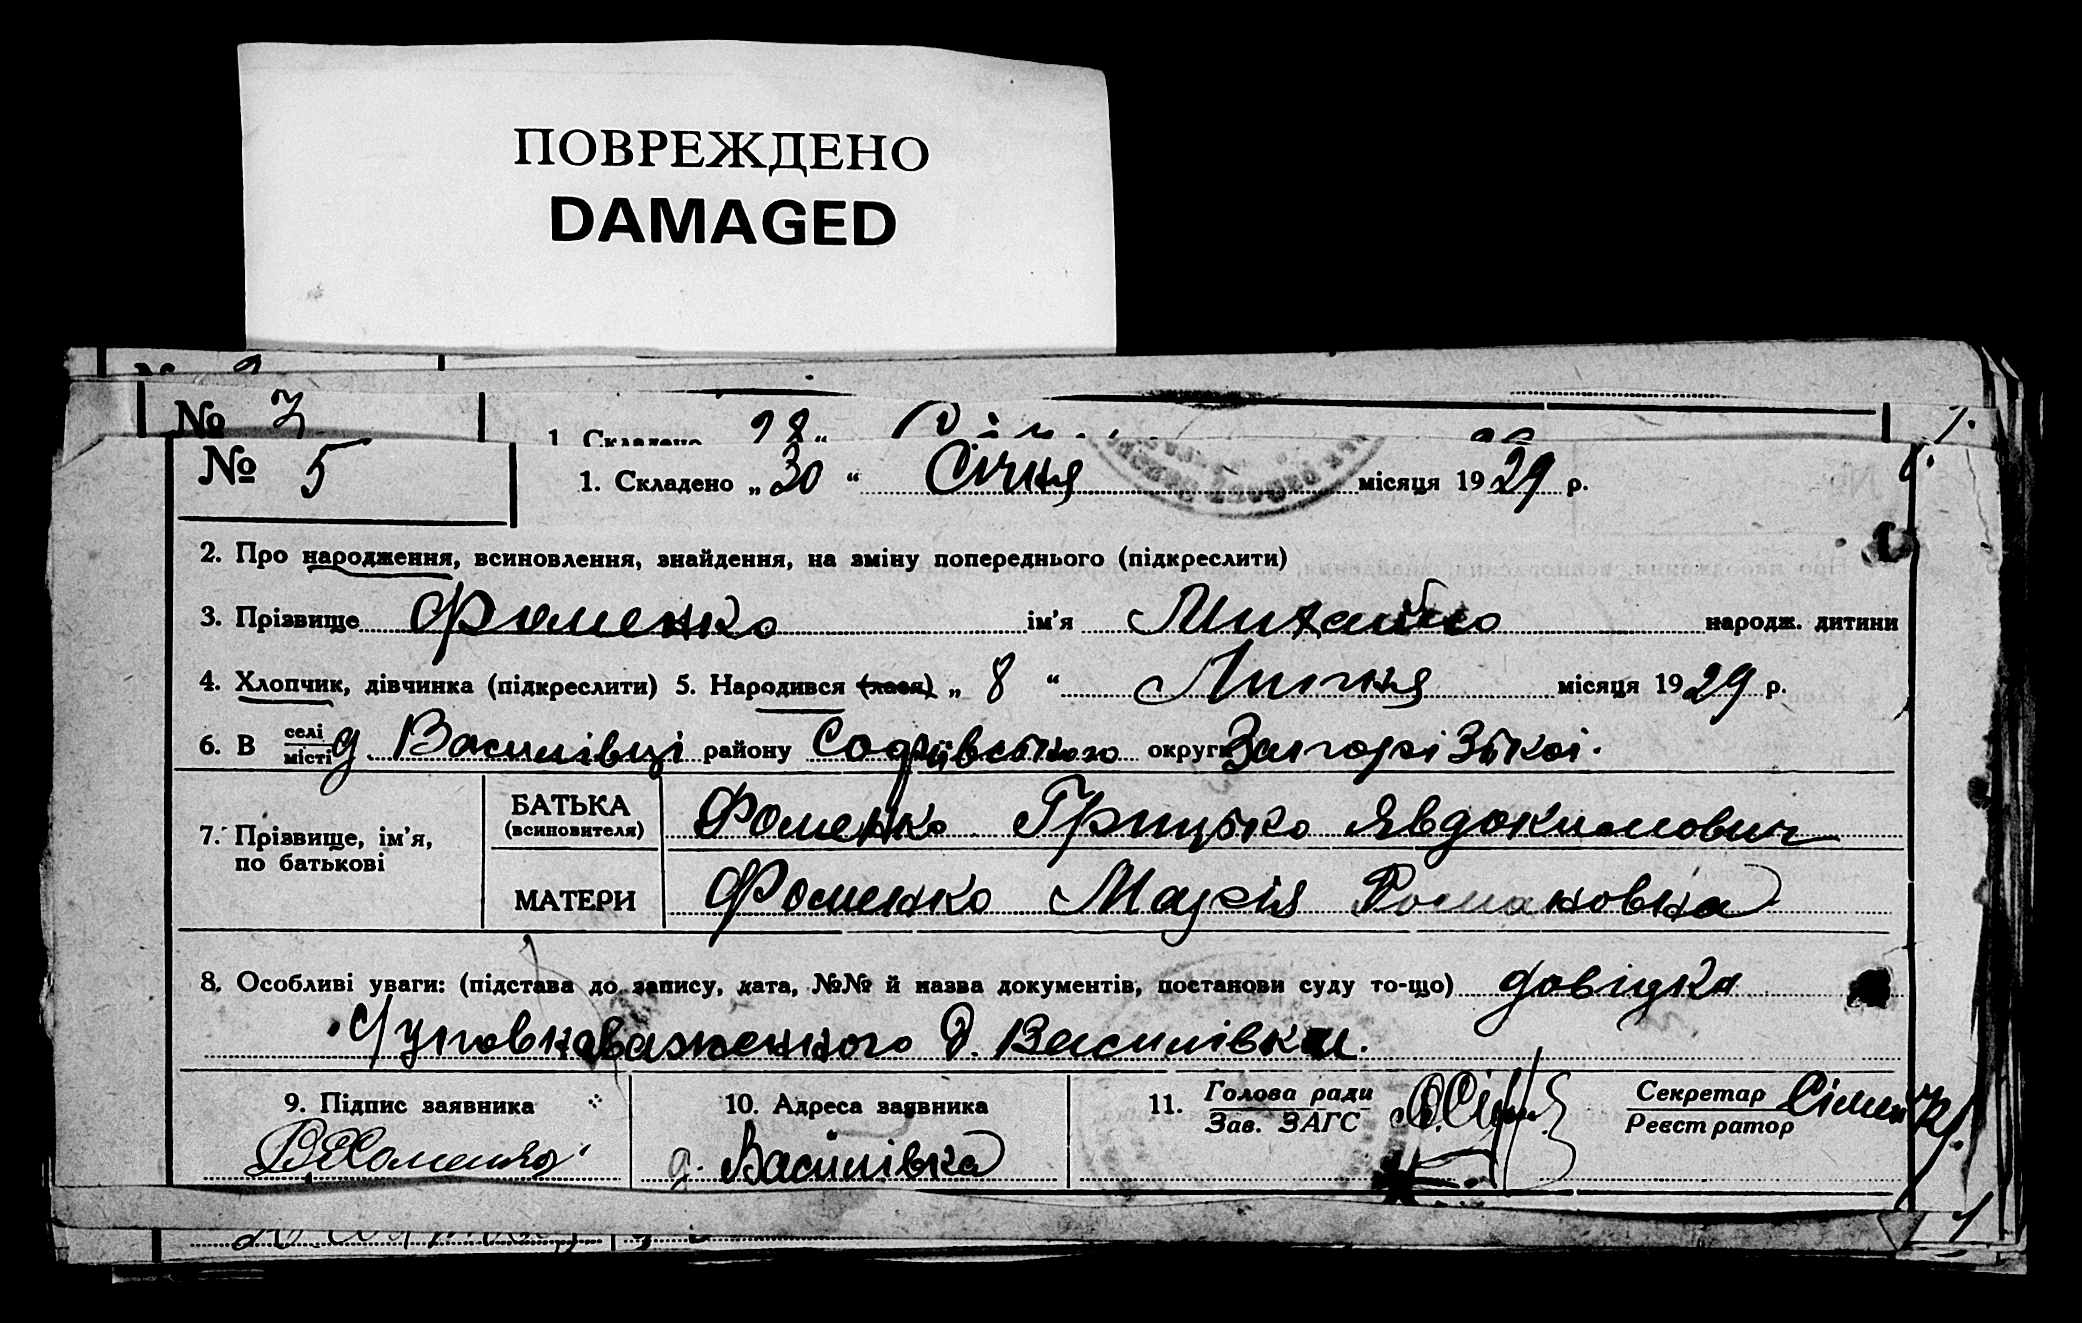 ПОВРЕЖДЕНО
DAMAGED
№ 7
1. Складено 28 „
№ 5
1. Складено „ 30 “ Січня місяця 1929 р.
2. Про народження, всиновлення, знайдення, на зміну попереднього (підкреслити)
3. Прізвище Фоменко ім'я Михайло народж. дитини
4. Хлопчик, дівчинка (підкреслити) 5. Народився (лася) „ 8 “ Липня місяця 1929 р.
6. В селі місті д. Василівці району Софіївського округи Запорізької.
7. Прізвище, ім'я, по батькові
БАТЬКА (всиновителя) Фоменко Грицько Явдокимович
МАТЕРИ Фоменко Марія Романовна
8. Особливі уваги: (підстава до запису, дата, №№ й назва документів, постанови суду то-що) довідка
Уповноваженного д. Василівки.
9. Підпис заявника
10. Адреса заявника
11. Голова ради
Зав. ЗАГС
Секретар
Реєстратор
д. Василівка